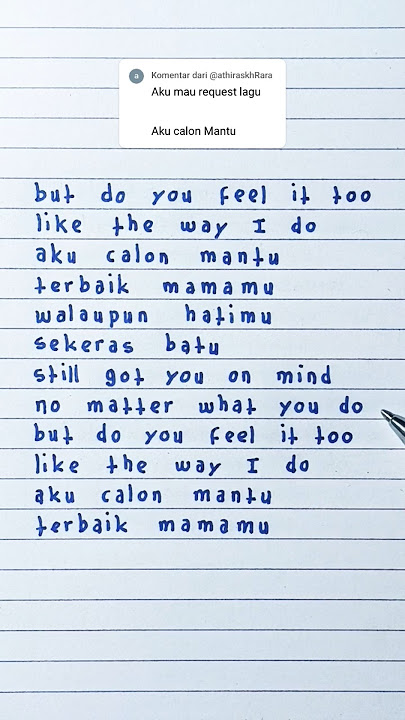 a Komentar dari @athiraskhRara
Aku mau request lagu
Aku calon Mantu
but do you feel it too
like the way I do
aku calon mantu
terbaik mamamu
walaupun hatimu
sekeras batu
still got you on mind
no matter what you do
but do you feel it too
like the way I do
aku calon mantu
terbaik mamamu